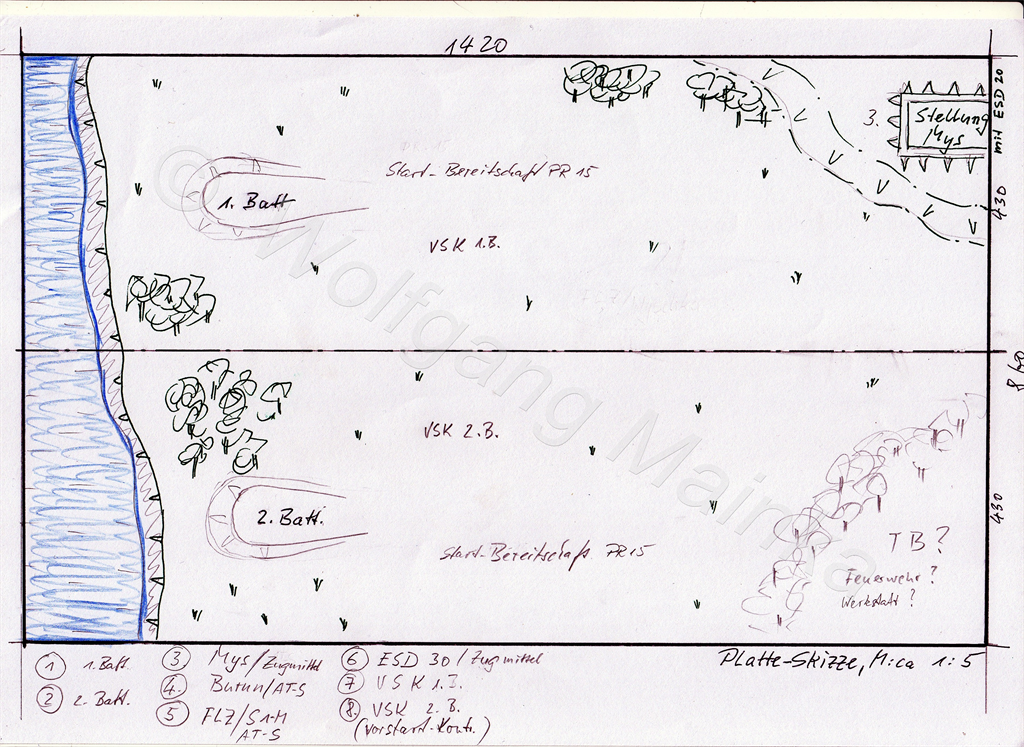 1420
3. Stellung
Mys
mit ESD 20
Start-Bereitschaft PR 15
1. Batt
VSK 1.B.
430
860
VSK 2.B.
2. Batt.
Start-Bereitschaft PR 15
430
TB?
Feuerwehr?
Werkstatt?
Platte-Skizze, M: ca 1:5
① 1. Batt.
② 2. Batt.
③ Mys/Zugmittel
④ Burun/AT-S
⑤ FLZ/S1-M
AT-S
⑥ ESD 30/Zugmittel
⑦ VSK 1.B.
⑧ VSK 2.B.
(Vorstart-Kontr.)
© Wolfgang Mainka